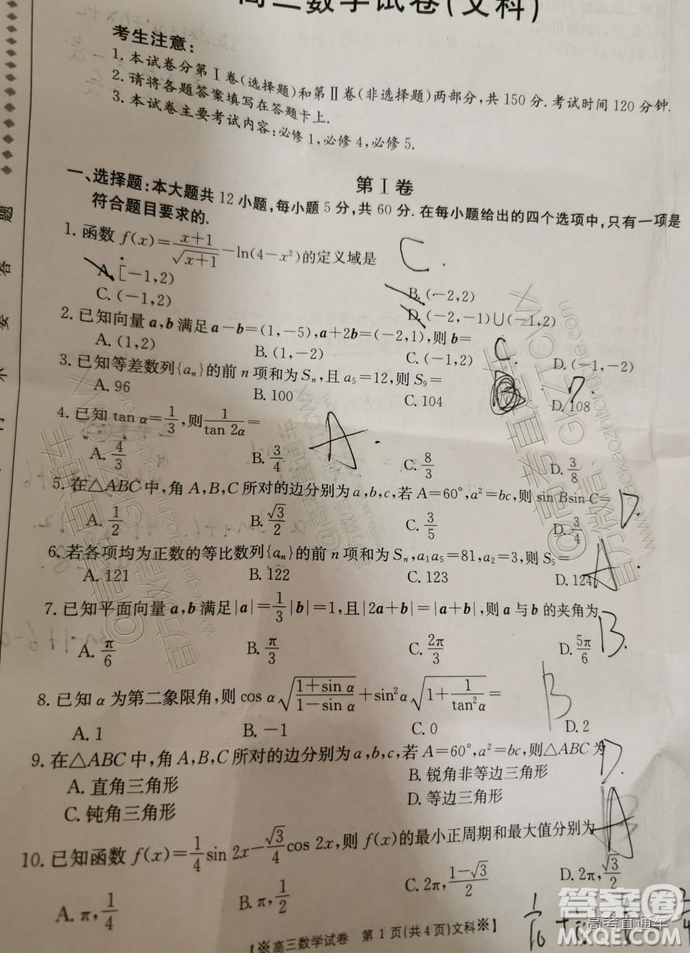 高三数学试卷(文科)
考生注意:
1. 本试卷分第Ⅰ卷(选择题)和第Ⅱ卷(非选择题)两部分,共 150 分. 考试时间 120 分钟.
2. 请将各题答案填写在答题卡上.
3. 本试卷主要考试内容:必修 1,必修 4,必修 5.
第Ⅰ卷
一、选择题:本大题共 12 小题,每小题 5 分,共 60 分. 在每小题给出的四个选项中,只有一项是
符合题目要求的.
1. 函数 f(x)=(x+1)/√(x+1)-ln(4-x²)的定义域是 C.
A. [-1,2) B. (-2,2)
C. (-1,2) D. (-2,-1)∪(-1,2)
2. 已知向量 a,b 满足 a-b=(1,-5),a+2b=(-2,1),则 b= C.
A. (1,2) B. (1,-2) C. (-1,2) D. (-1,-2)
3. 已知等差数列{aₙ}的前 n 项和为 Sₙ,且 a₅=12,则 S₉=
A. 96 B. 100 C. 104 D. 108
4. 已知 tan α=1/3,则 1/tan 2α= A.
A. 4/3 B. 3/4 C. 8/3 D. 3/8
5. 在△ABC 中,角 A,B,C 所对的边分别为 a,b,c,若 A=60°,a²=bc,则 sin Bsin C= D.
A. 1/2 B. √3/2 C. 3/5 D. 3/4
6. 若各项均为正数的等比数列{aₙ}的前 n 项和为 Sₙ,a₁a₅=81,a₂=3,则 S₅= A.
A. 121 B. 122 C. 123 D. 124
7. 已知平面向量 a,b 满足|a|=1/3|b|=1,且|2a+b|=|a+b|,则 a 与 b 的夹角为 B.
A. π/6 B. π/3 C. 2π/3 D. 5π/6
8. 已知 α 为第二象限角,则 cos α√((1+sin α)/(1-sin α))+sin²α√(1+1/tan²α)= B
A. 1 B. -1 C. 0 D. 2
9. 在△ABC 中,角 A,B,C 所对的边分别为 a,b,c,若 A=60°,a²=bc,则△ABC 为 D.
A. 直角三角形 B. 锐角非等边三角形
C. 钝角三角形 D. 等边三角形
10. 已知函数 f(x)=1/4 sin 2x-√3/4 cos 2x,则 f(x)的最小正周期和最大值分别为 A
A. π,1/4 B. π,1/2 C. 2π,(1-√3)/2 D. 2π,√3/2
【※高三数学试卷 第 1 页(共 4 页)文科※】
答案圈
高考直通车
MXQE.COM